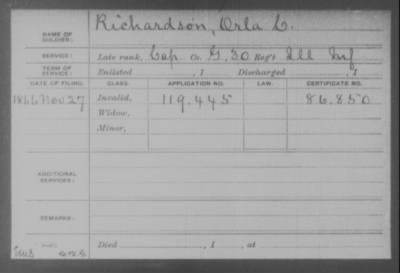 NAME OF SOLDIER: Richardson, Orla C.
SERVICE: Late rank, Cap. Co. G, 30 Reg't Ill Inf
TERM OF SERVICE: Enlisted , 1 Discharged , 1
DATE OF FILING. CLASS. APPLICATION NO. LAW. CERTIFICATE NO.
1866 Nov 27 Invalid, 119.445 86.850
Widow,
Minor,
ADDITIONAL SERVICES:
REMARKS:
Died , 1 , at